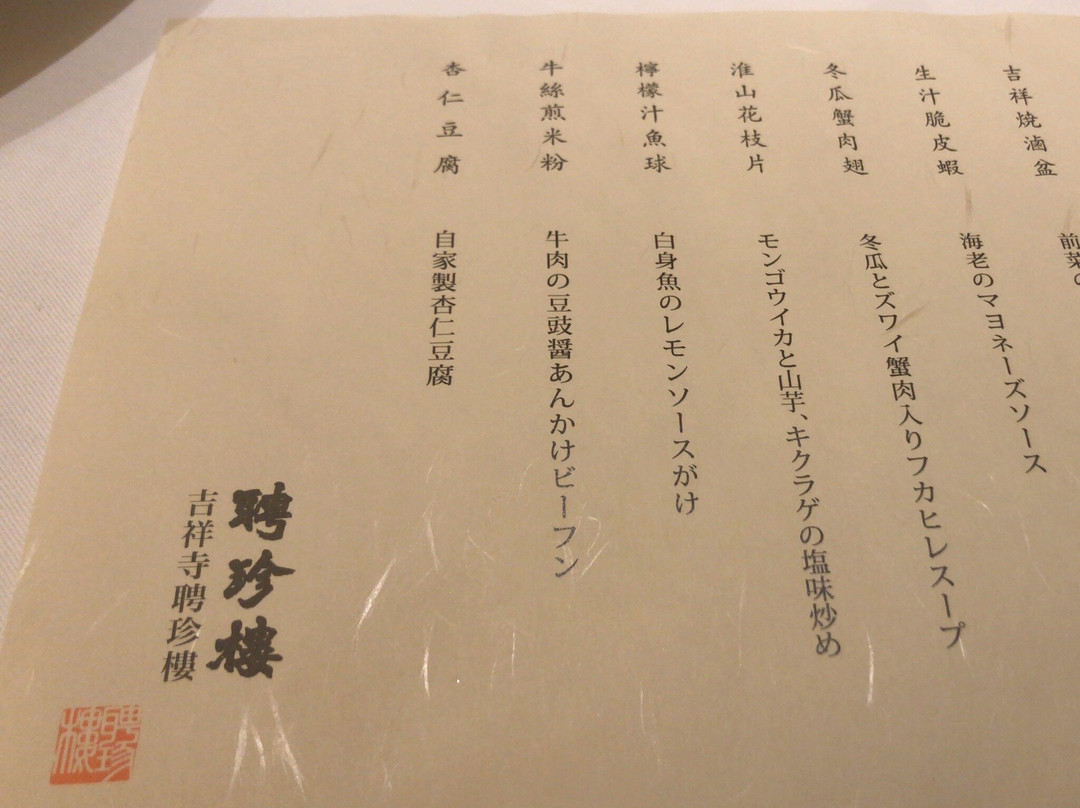 吉祥焼滷盆
前菜の
生汁脆皮蝦
海老のマヨネーズソース
冬瓜蟹肉翅
冬瓜とズワイ蟹肉入りフカヒレスープ
淮山花枝片
モンゴウイカと山芋、キクラゲの塩味炒め
檸檬汁魚球
白身魚のレモンソースがけ
牛絲煎米粉
牛肉の豆豉醤あんかけビーフン
杏仁豆腐
自家製杏仁豆腐
聘珍樓
吉祥寺聘珍樓
聘珍樓